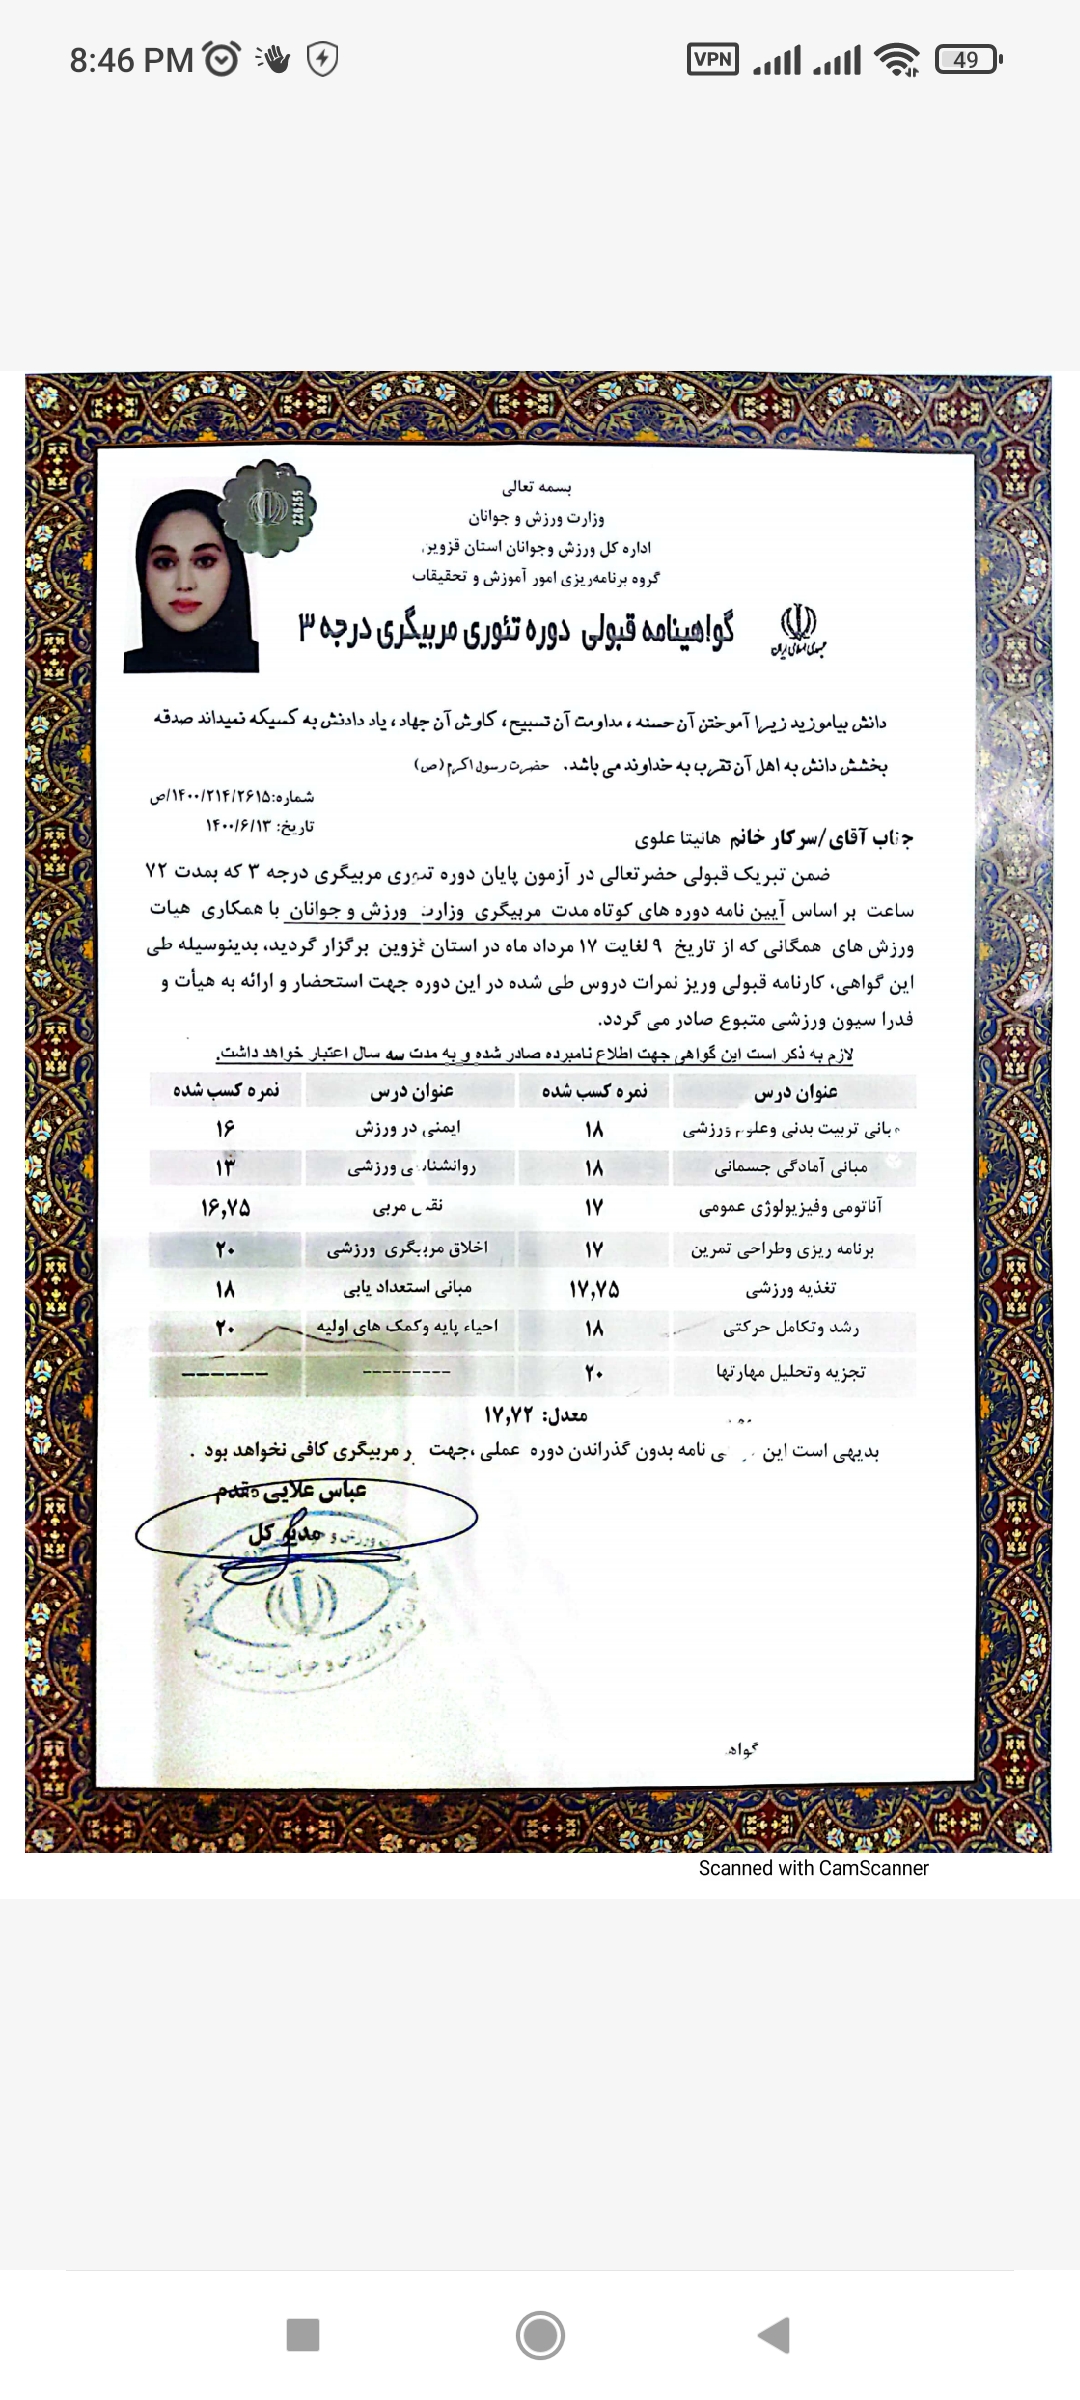 8:46 PM
VPN
49
226255
بسمه تعالی
وزارت ورزش و جوانان
اداره کل ورزش وجوانان استان قزوین
گروه برنامه‌ریزی امور آموزش و تحقیقات
گواهینامه قبولی دوره تئوری مربیگری درجه ۳
جمهوری اسلامی ایران
دانش بیاموزید زیرا آموختن آن حسنه ، مداومت آن تسبیح، کاوش آن جهاد، یاد دادنش به کسیکه نمیداند صدقه
بخشش دانش به اهل آن تقرب به خداوند می باشد. حضرت رسول اکرم(ص)
شماره:۱۴۰۰/۲۱۴/۲۶۱۵/ص
تاریخ: ۱۴۰۰/۶/۱۳
جناب آقای/سرکار خانم هانیتا علوی
ضمن تبریک قبولی حضرتعالی در آزمون پایان دوره تئوری مربیگری درجه ۳ که بمدت ۷۲
ساعت بر اساس آیین نامه دوره های کوتاه مدت مربیگری وزارت ورزش و جوانان با همکاری هیات
ورزش های همگانی که از تاریخ ۹ لغایت ۱۷ مرداد ماه در استان قزوین برگزار گردید، بدینوسیله طی
این گواهی، کارنامه قبولی وریز نمرات دروس طی شده در این دوره جهت استحضار و ارائه به هیأت و
فدرا سیون ورزشی متبوع صادر می گردد.
لازم به ذکر است این گواهی جهت اطلاع نامبرده صادر شده و به مدت سه سال اعتبار خواهد داشت.
عنوان درس نمره کسب شده عنوان درس نمره کسب شده
مبانی تربیت بدنی وعلوم ورزشی ۱۸ ایمنی در ورزش ۱۶
مبانی آمادگی جسمانی ۱۸ روانشناسی ورزشی ۱۳
آناتومی وفیزیولوژی عمومی ۱۷ نقش مربی ۱۶,۷۵
برنامه ریزی وطراحی تمرین ۱۷ اخلاق مربیگری ورزشی ۲۰
تغذیه ورزشی ۱۷,۷۵ مبانی استعداد یابی ۱۸
رشد وتکامل حرکتی ۱۸ احیاء پایه وکمک های اولیه ۲۰
تجزیه وتحلیل مهارتها ۲۰ --------- ------
معدل: ۱۷,۷۲
بدیهی است این نامه بدون گذراندن دوره عملی ،جهت مربیگری کافی نخواهد بود .
عباس علایی مقدم
مدیر کل
گواه
Scanned with CamScanner